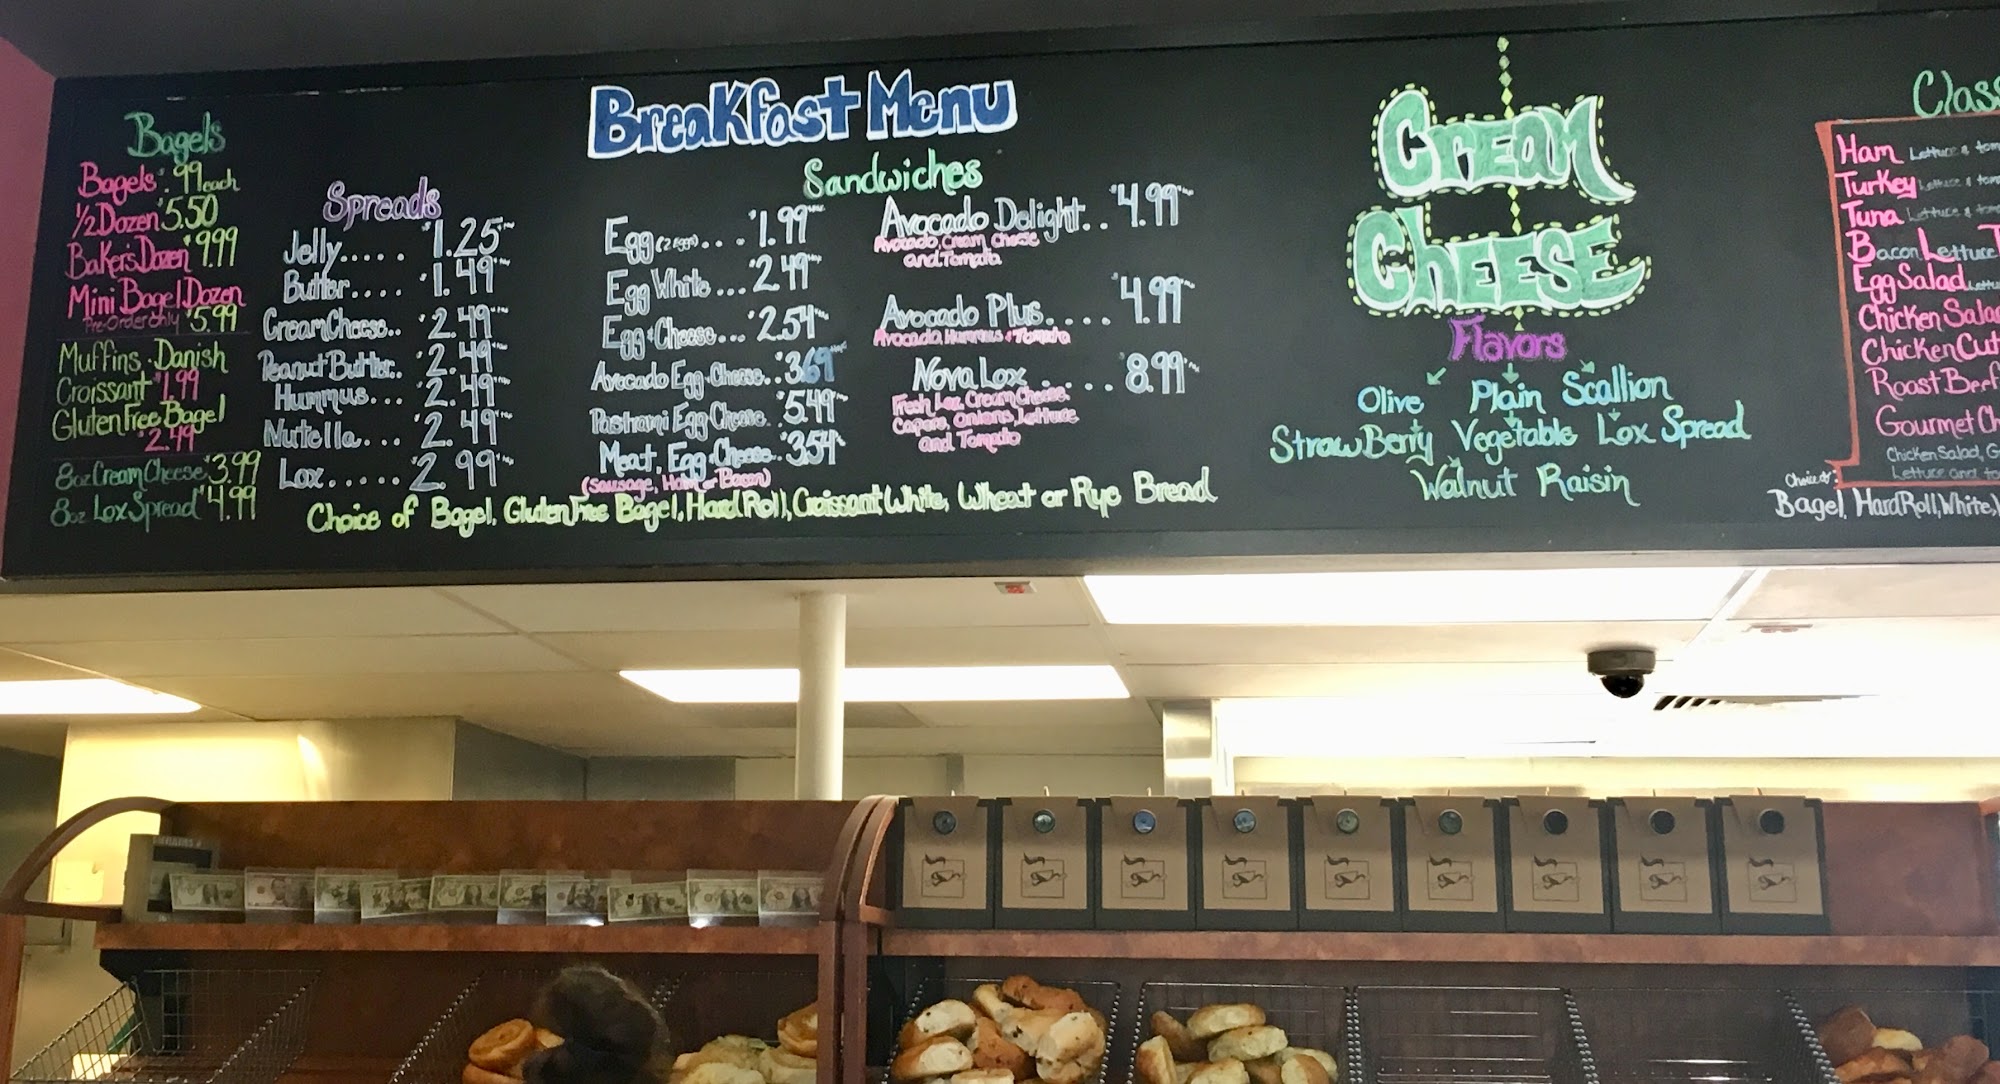 Bagels
Bagels .99 each
1/2 Dozen $5.50
Bakers Dozen $9.99
Mini Bagel Dozen
Pre-Order Only $5.99
Muffins · Danish
Croissant $1.99
Gluten Free Bagel
$2.49
8oz Cream Cheese $3.99
8oz Lox Spread $4.99
Breakfast Menu
Spreads
Jelly..... $1.25
Butter.... $1.49
Cream Cheese.. $2.49
Peanut Butter.. $2.49
Hummus... $2.49
Nutella... $2.49
Lox..... $2.99
Sandwiches
Egg (2 eggs).... $1.99
Egg White... $2.49
Egg & Cheese... $2.54
Avocado Egg & Cheese.. $3.69
Pastrami Egg & Cheese. $5.49
Meat, Egg & Cheese.. $3.54
(Sausage, Ham or Bacon)
Avocado Delight... $4.99
Avocado, Cream Cheese
and Tomato
Avocado Plus..... $4.99
Avocado, Hummus & Tomato
Nova Lox .... $8.99
Fresh Lox, Cream Cheese,
Capers, Onions, Lettuce
and Tomato
Choice of Bagel, Gluten Free Bagel, Hard Roll, Croissant, White, Wheat or Rye Bread
Cream
Cheese
Flavors
Olive Plain Scallion
StrawBerry Vegetable Lox Spread
Walnut Raisin
Class
Ham Lettuce & tom
Turkey Lettuce & tom
Tuna Lettuce & tom
Bacon Lettuce T
Egg Salad Lettu
Chicken Salad
Chicken Cut
Roast Beef
Gourmet Ch
Chicken Salad, G
Lettuce and to
Choice of:
Bagel, Hard Roll, White, W